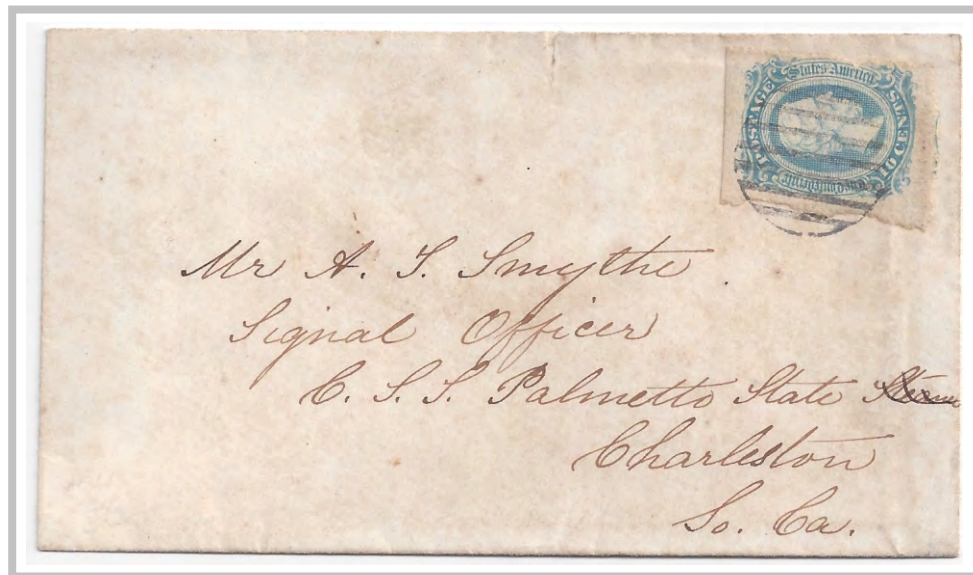 POSTAGE
States America
10 CENTS
Mr A. T. Smythe
Signal Officer
C. S. S. Palmetto State
Charleston
So. Ca.